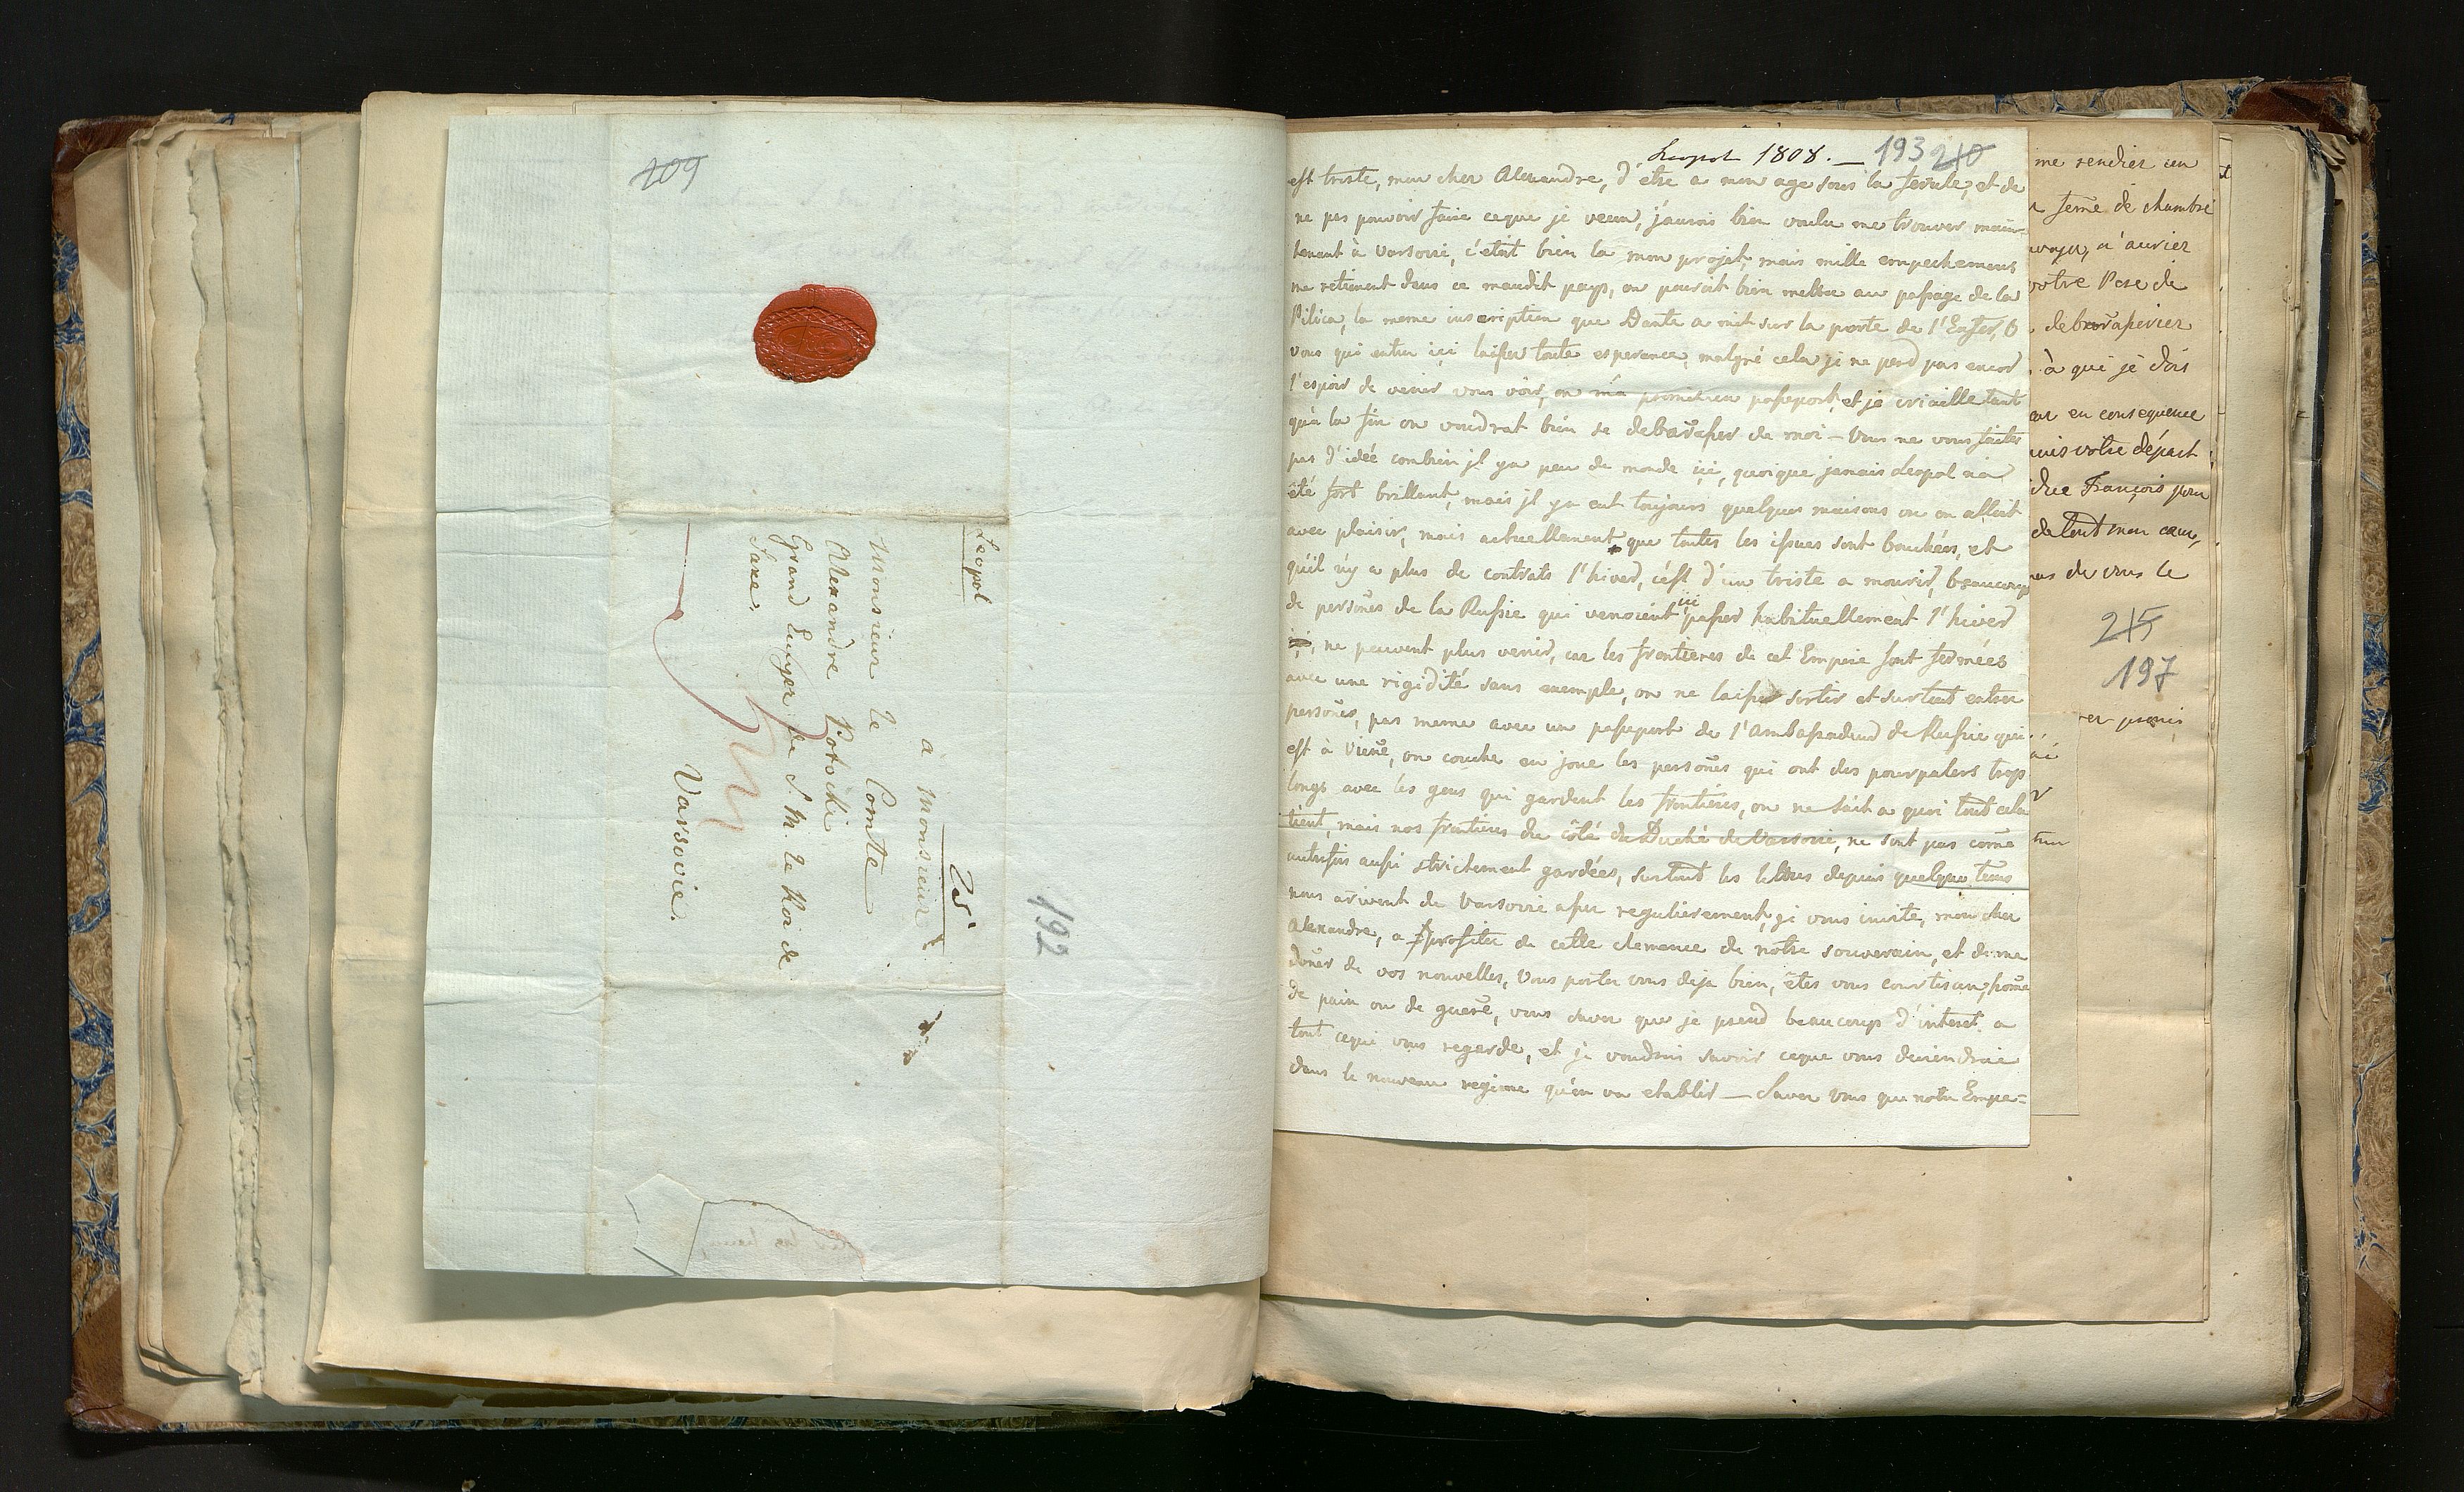 209
Leopol
25
à Monsieur
Monsieur le Comte
Alexandre Potocki
Grand Ecuyer de S. M. le Roi de
Saxe.
Varsovie.
192
Leopol 1808. — 193 210
est triste, mon cher Alexandre, d'etre a mon age sous la ferule, et de
ne pas pouvoir faire ceque je veux, j'aurois bien voulu me trouver main-
tenant à Varsovie, c'etoit bien la mon projet, mais mille empechemens
me retienent dans ce maudit pays, on pouroit bien mettre au passage de la
Pilica, la meme inscription que Dante a mit sur la porte de l'Enfer, O
vous qui entrer içi laisser toute esperance, malgré cela je ne perd pas encor
l'espoir de venir vous voir, on m'a promit un passeport, et je criaille tant
qu'a la fin on voudrat bien se debarasser de moi — Vous ne vous faites
pas d'idée combien jl ya peu de monde içi, quoique jamais Leopol n'a
été fort brillant, mais jl ya eut toujours quelques maisons ou on alloit
avec plaisir, mais actuellement que toutes les issues sont bouchées, et
qu'il n'y a plus de contrats l'hiver, c'est d'un triste a mourir, beaucoup
de persones de la Russie qui venoient içi passer habituellement l'hiver
ne peuvent plus venir, car les frontieres de cet Empire sont fermées
avec une rigidité sans exemple, on ne laisse sortir et surtout entrer
persones, pas meme avec un passeport de l'Ambassadeur de Russie qui
est à Viene, on couche en joue les persones qui ont des pourpalers trop
longs avec les gens qui gardent les frontieres, on ne sait a quoi tout cela
tient, mais nos frontieres du côté du Duché de Varsovie, ne sont pas come
autrefois aussi strictement gardées, surtout les lettres depuis quelque tems
nous arivent de Varsovie asser regulierement, je vous invite, mon cher
Alexandre, a profiter de cette clemence de notre souverain, et de me
doner de vos nouvelles, Vous porter vous deja bien, êtes vous courtisan, home
de paix ou de guere, vous saver que je prend beaucoup d'interet a
tout cequi vous regarde, et je voudrois savoir ceque vous deviendrai
dans le nouveau regime qu'on va etablir — Saver vous que notre Empe-
me rendier un
feme de chambre
n'auriez
votre Pere de
à qui je dois
en consequence
votre départ
François pour
de tout mon cœur,
de vous le
215
197